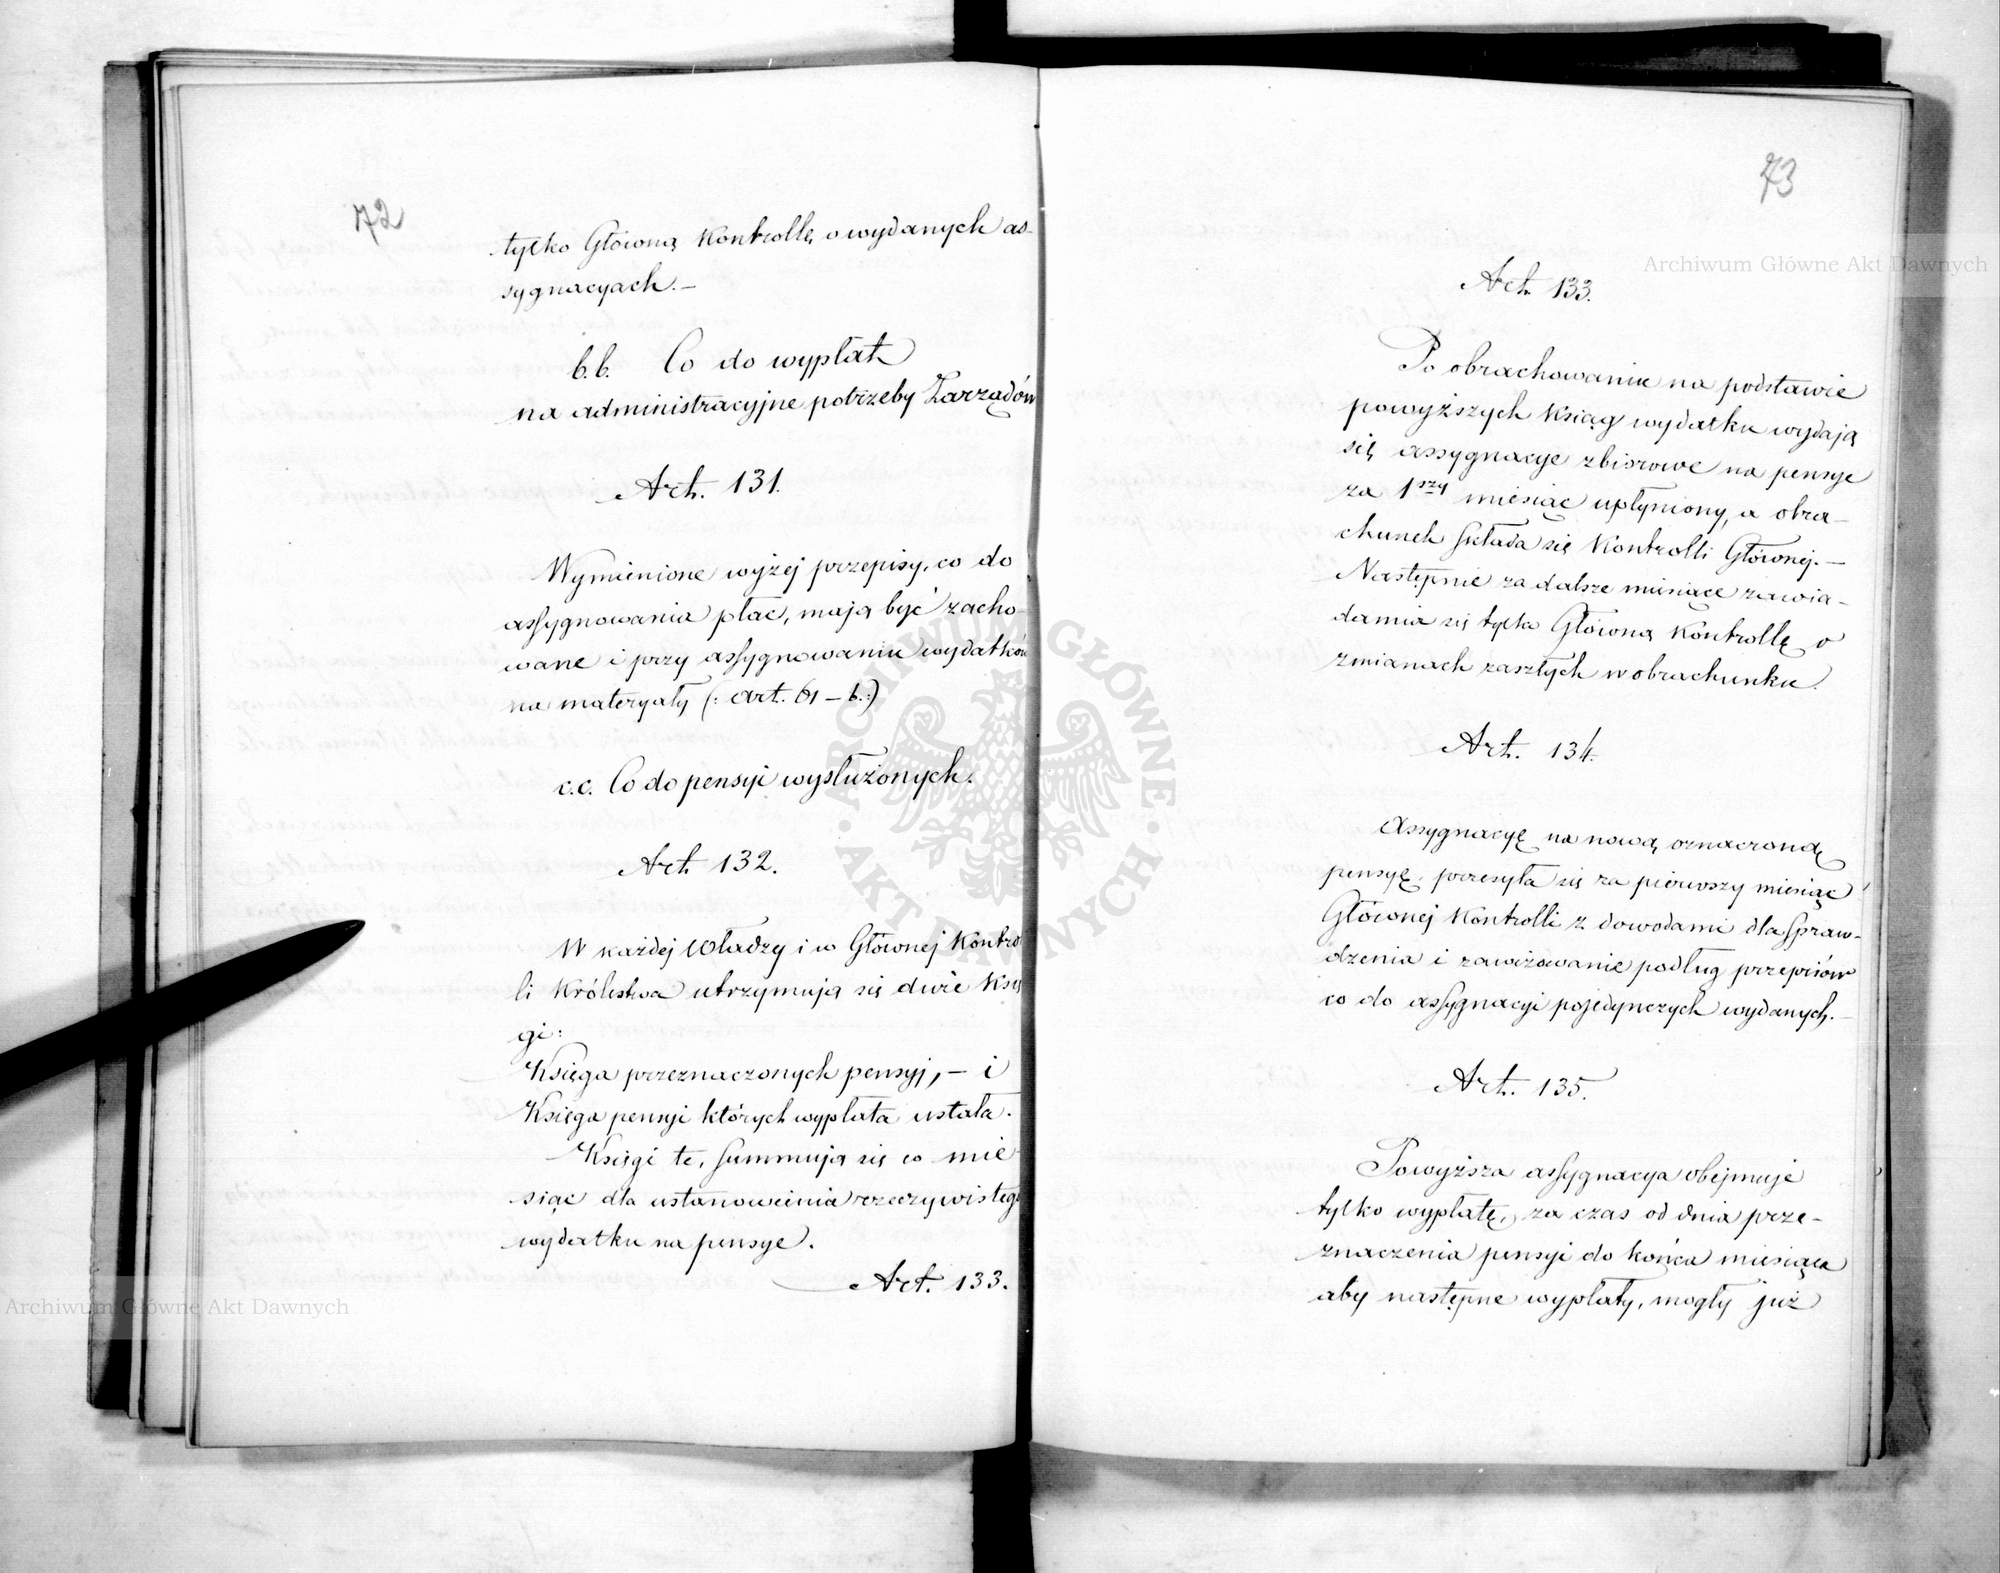 72
tylko Główną Kontrollę o wydanych as-
sygnacyach. –
b.b. Co do wypłat
na administracyjne potrzeby Zarządów
Art. 131.
Wymienione wyżej przepisy, co do
assygnowania płac, mają być zacho-
wane i przy assygnowaniu wydatków
na materyały (: art. 61 – b.:)
c.c. Co do pensyi wysłużonych.
Art. 132.
W każdej Władzy i w Głównej Kontro
li Królestwa utrzymują się dwie Księ
gi:
Księga przeznaczonych pensyj, – i
Księga pensyi których wypłata ustała.
Księgi te, summują się co mie
siąc dla ustanowienia rzeczywistego
wydatku na pensye.
Art. 133.
73
Art. 133.
Po obrachowaniu na podstawie
powyższych Ksiąg wydatku wydają
się assygnacye zbiorowe na pensye
za 1szy miesiąc upłyniony, a obra-
chunek składa się Kontrolli Głównej. –
Następnie za dalsze miesiące zawia-
damia się tylko Główną Kontrollę o
zmianach zaszłych w obrachunku.
Art. 134.
Assygnacyę na nową oznaczoną
pensyę, przesyła się za pierwszy miesiąc
Głównej Kontrolli z dowodami dla spraw-
dzenia i zawizowanie podług przepisów
co do assygnacyi pojedynczych wydanych. –
Art. 135.
Powyższa assygnacya obejmuje
tylko wypłatę, za czas od dnia prze-
znaczenia pensyi do końca miesiąca
aby następne wypłaty, mogły już
Archiwum Główne Akt Dawnych
ARCHIWUM GŁÓWNE AKT DAWNYCH
Archiwum Główne Akt Dawnych